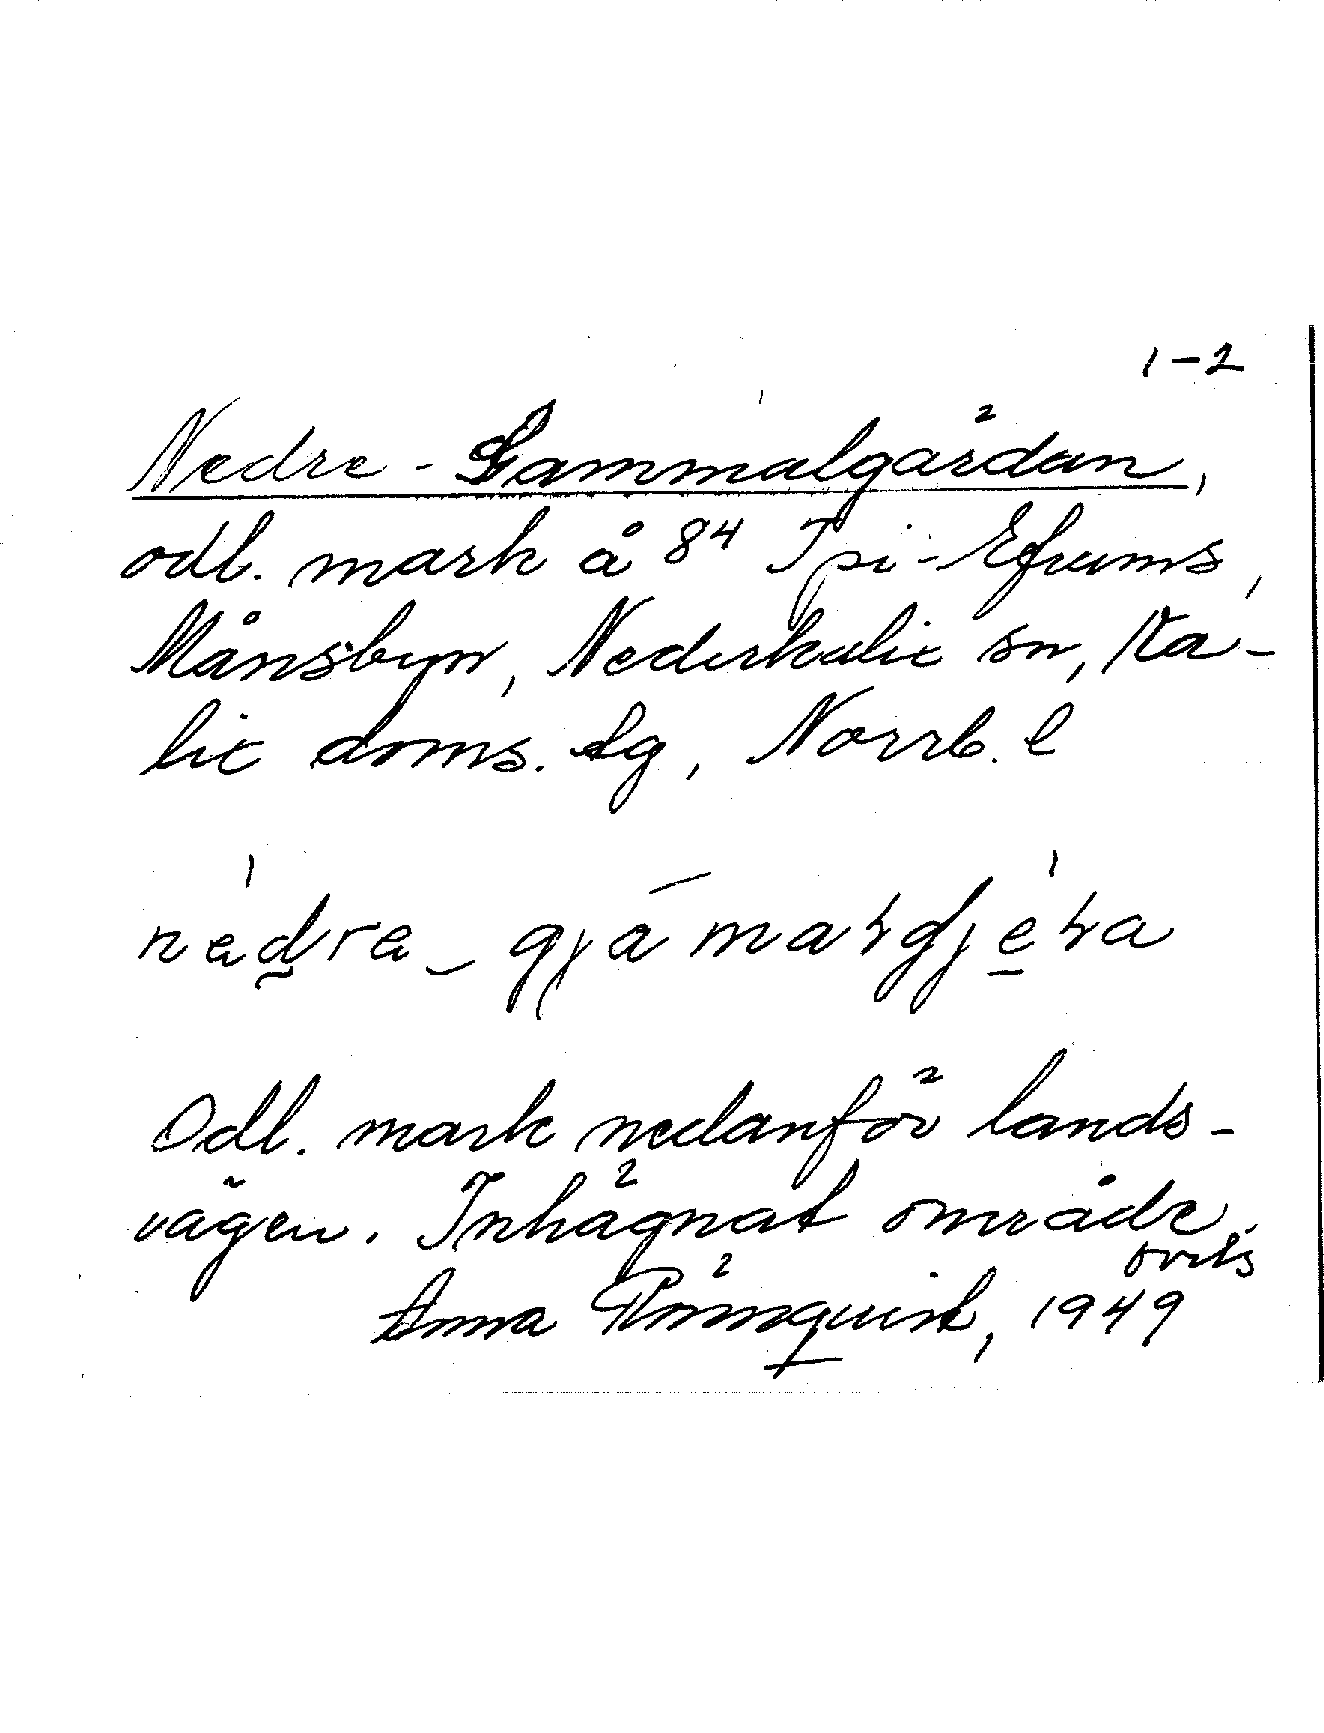 1-2
Nedre-Gammalgärdan,
odl. mark å 8⁴ Tpi-Efraims,
Månsbyn, Nederkalix sn, Ka-
lix doms. lg, Norrb. l
nedra-gjamaldjera
Odl. mark nedanför lands-
vägen. Inhägnat område.
övers
Anna Rönnquist, 1949